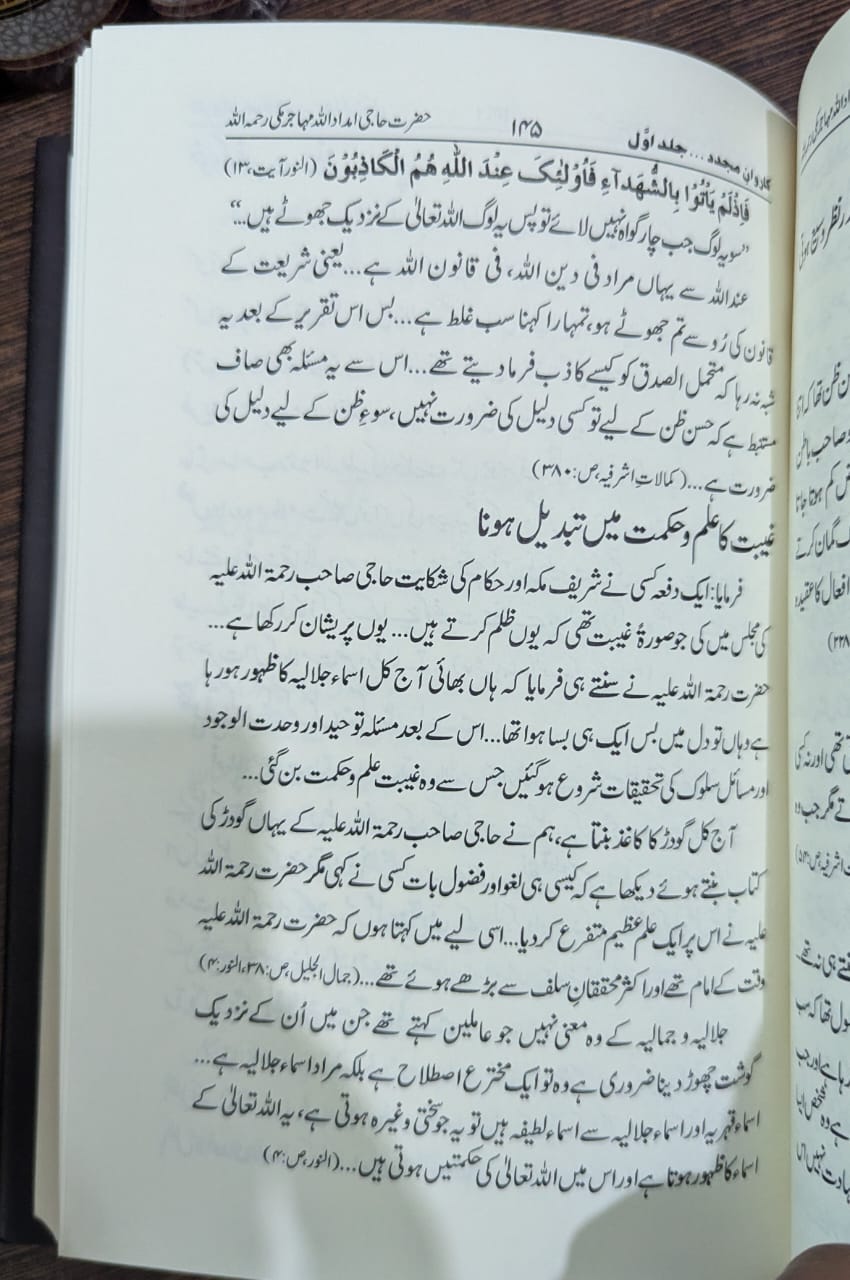 کاروانِ مجدد... جلد اوّل ۱۴۵ حضرت حاجی امداد اللہ مہاجر مکی رحمہ اللہ
فَاِذْلَمْ یَاْتُوْا بِالشُّهَدآءِ فَاُوْلٰئِکَ عِنْدَ اللّٰهِ هُمُ الْکَاذِبُوْنَ (النور آیت،۱۳)
”سو یہ لوگ جب چار گواہ نہیں لائے تو پس یہ لوگ اللہ تعالیٰ کے نزدیک جھوٹے ہیں...“
عند اللہ سے یہاں مراد فی دین اللہ، فی قانون اللہ ہے... یعنی شریعت کے
قانون کی رُو سے تم جھوٹے ہو، تمہارا کہنا سب غلط ہے... بس اس تقریر کے بعد یہ
شبہ نہ رہا کہ متحمل الصدق کو کیسے کاذب فرما دیتے تھے... اس سے یہ مسئلہ بھی صاف
مستنبط ہے کہ حسن ظن کے لیے تو کسی دلیل کی ضرورت نہیں، سوءِ ظن کے لیے دلیل کی
ضرورت ہے... (کمالاتِ اشرفیہ،ص:۳۸۰)
غیبت کا علم و حکمت میں تبدیل ہونا
فرمایا: ایک دفعہ کسی نے شریف مکہ اور حکام کی شکایت حاجی صاحب رحمۃ اللہ علیہ
کی مجلس میں کی جو صورۃً غیبت تھی کہ یوں ظلم کرتے ہیں... یوں پریشان کر رکھا ہے...
حضرت رحمۃ اللہ علیہ نے سنتے ہی فرمایا کہ ہاں بھائی آج کل اسماء جلالیہ کا ظہور ہو رہا
ہے وہاں تو دل میں بس ایک ہی بسا ہوا تھا... اس کے بعد مسئلہ توحید اور وحدت الوجود
اور مسائل سلوک کی تحقیقات شروع ہو گئیں جس سے وہ غیبت علم و حکمت بن گئی...
آج کل گودڑ کا کاغذ بنتا ہے، ہم نے حاجی صاحب رحمۃ اللہ علیہ کے یہاں گودڑ کی
کتاب بنتے ہوئے دیکھا ہے کہ کیسی ہی لغو اور فضول بات کسی نے کہی مگر حضرت رحمۃ اللہ
علیہ نے اس پر ایک علم عظیم متفرع کر دیا... اسی لیے میں کہتا ہوں کہ حضرت رحمۃ اللہ علیہ
وقت کے امام تھے اور اکثر محققانِ سلف سے بڑھے ہوئے تھے... (جمال الجلیل،ص:۳۸،النور:۴)
جلالیہ و جمالیہ کے وہ معنی نہیں جو عاملین کہتے تھے جن میں اُن کے نزدیک
گوشت چھوڑ دینا ضروری ہے وہ تو ایک مخترع اصطلاح ہے بلکہ مراد اسماء جلالیہ ہے...
اسماء قہریہ اور اسماء جلالیہ سے اسماء لطیفہ ہیں تو یہ جو سختی وغیرہ ہوتی ہے، یہ اللہ تعالیٰ کے
اسماء کا ظہور ہوتا ہے اور اس میں اللہ تعالیٰ کی حکمتیں ہوتی ہیں... (النور،ص:۴)